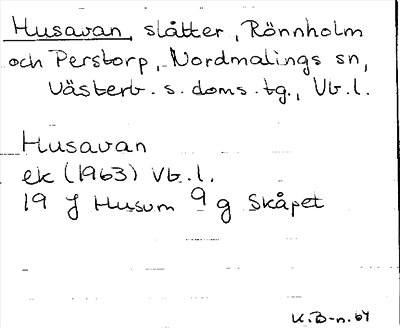 Husavan, slåtter, Rönnholm
och Perstorp, Nordmalings sn,
Västerb. s. doms. tg., Vb. l.
Husavan
ek (1963) Vb. l.
19 J Husum 9 g Skåpet
K. B-n. 64